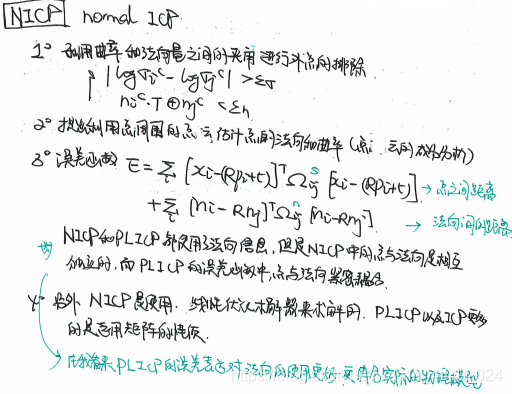 NICP normal ICP
1° 利用曲率和法向量之间的夹角进行外点的排除
| log σi^c - log σj^c | > εσ
ni^c · T ⊕ nj^c < εn
2° 提出利用点周围的点云估计点的法向和曲率(点云的成分分析)
3° 误差函数 E = Σ [xi-(Rpi+t)]^T Ωij^s [xi-(Rpi+t)] → 点之间距离
+ Σ [ni-Rnj]^T Ωij^n [ni-Rnj] → 法向间的距离
NICP和PLICP都使用了法向信息,但是NICP中的点与法向是相互
独立的,而PLICP的误差函数中,点与法向紧密耦合.
4° 另外 NICP是使用 线性优化求解器来求解的. PLICP以及ICP
的是运用矩阵的性质
在我看来PLICP的误差表示对法向的使用更 更符合实际的物理